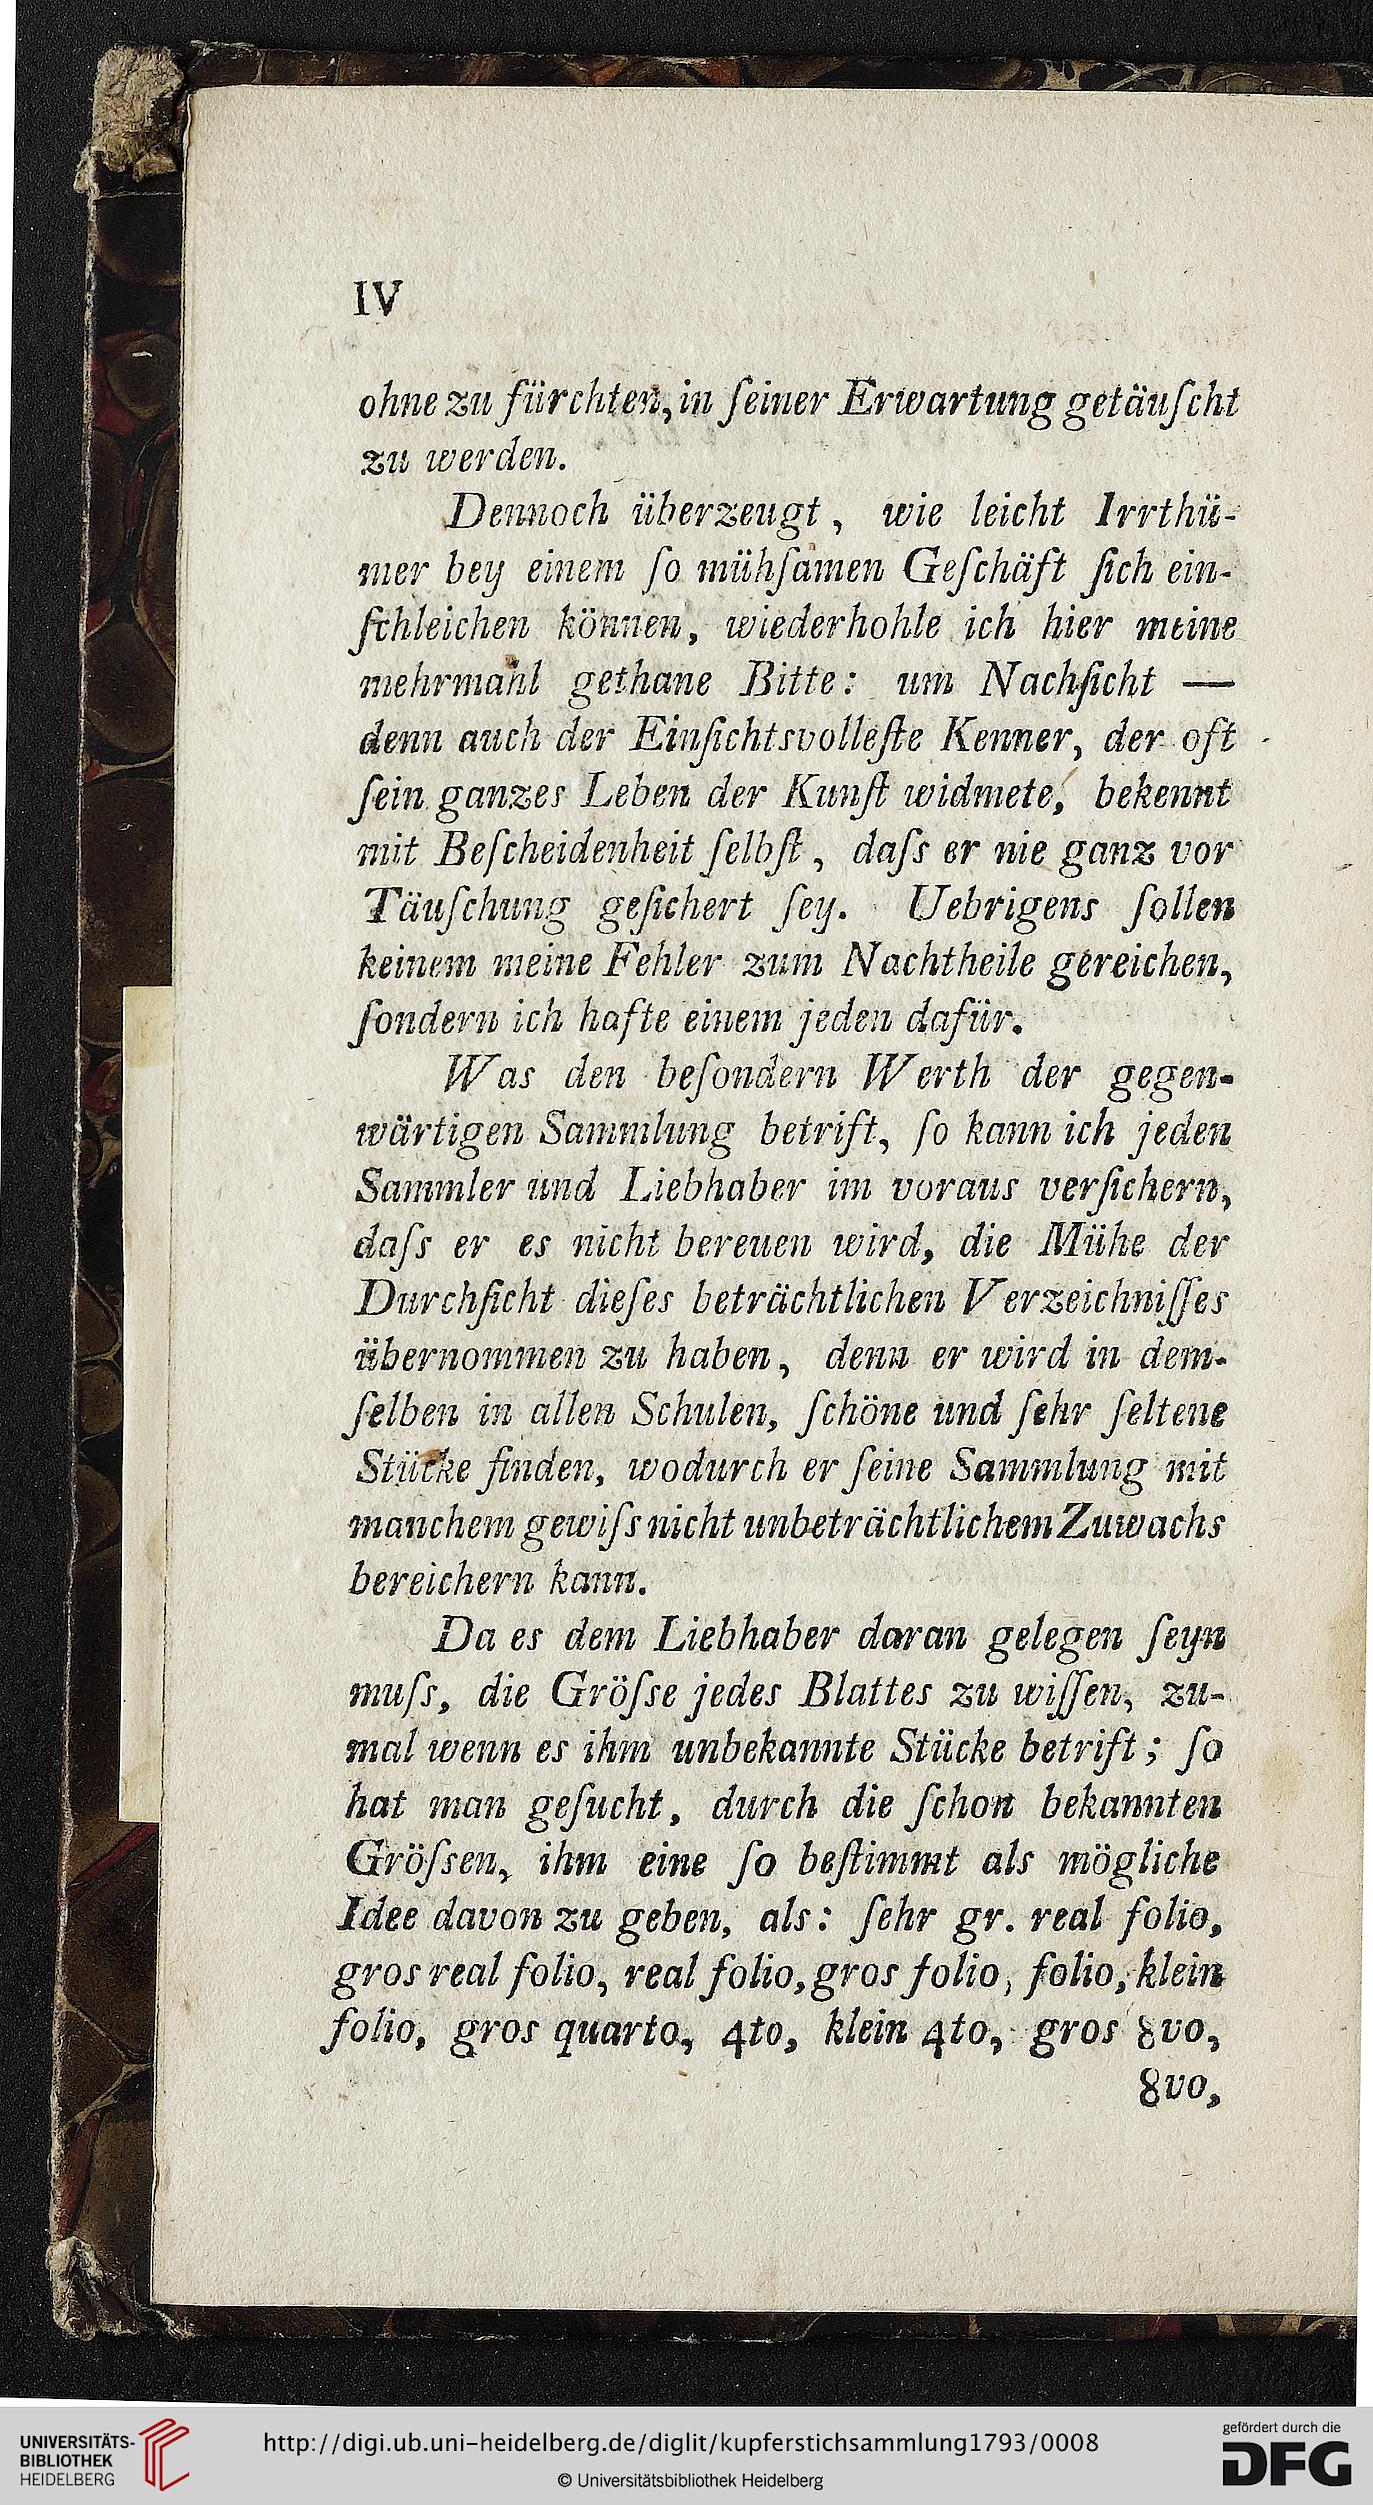 IV
ohne zu fürchten, in ſeiner Erwartung getäuſcht
zu werden.
Dennoch überzeugt, wie leicht Irrthü-
mer bey einem ſo mühſamen Geſchäft ſich ein-
ſchleichen können, wiederhohle ich hier meine
mehrmahl gethane Bitte: um Nachſicht —
denn auch der Einſichtsvolleſte Kenner, der oft
ſein ganzes Leben der Kunſt widmete, bekennt
mit Beſcheidenheit ſelbſt, daſs er nie ganz vor
Täuſchung geſichert ſey. Uebrigens ſollen
keinem meine Fehler zum Nachtheile gereichen,
ſondern ich hafte einem jeden dafür.
Was den beſondern Werth der gegen-
wärtigen Sammlung betrift, ſo kann ich jeden
Sammler und Liebhaber im voraus verſichern,
daſs er es nicht bereuen wird, die Mühe der
Durchſicht dieſes beträchtlichen Verzeichniſſes
übernommen zu haben, denn er wird in dem-
ſelben in allen Schulen, ſchöne und ſehr ſeltene
Stücke finden, wodurch er ſeine Sammlung mit
manchem gewiſs nicht unbeträchtlichem Zuwachs
bereichern kann.
Da es dem Liebhaber daran gelegen ſeyn
muſs, die Gröſse jedes Blattes zu wiſſen, zu-
mal wenn es ihm unbekannte Stücke betrift; ſo
hat man geſucht, durch die ſchon bekannten
Gröſsen, ihm eine ſo beſtimmt als mögliche
Idee davon zu geben, als: ſehr gr. real folio,
gros real folio, real folio, gros folio, folio, klein
folio, gros quarto, 4to, klein 4to, gros 8vo,
8vo,
UNIVERSITÄTS-
BIBLIOTHEK
HEIDELBERG
http://digi.ub.uni-heidelberg.de/diglit/kupferstichsammlung1793/0008
© Universitätsbibliothek Heidelberg
gefördert durch die
DFG